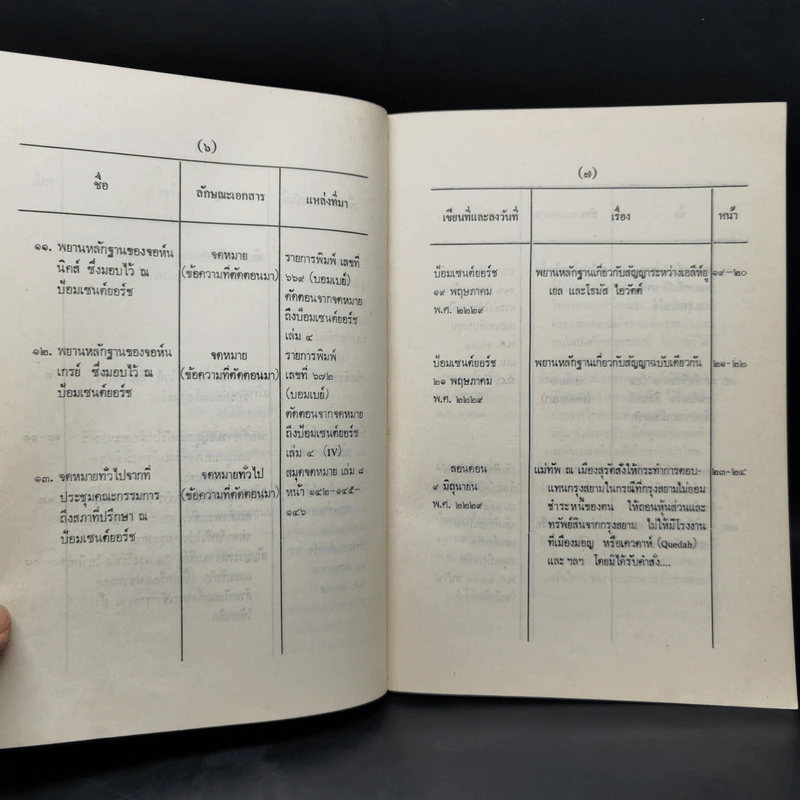 (๖)
ชื่อ
ลักษณะเอกสาร
แหล่งที่มา
๑๑. พยานหลักฐานของจอห์น
นิคส์ ซึ่งมอบไว้ ณ
ป้อมเซนต์ยอร์ช
จดหมาย
(ข้อความที่ตัดตอนมา)
รายการพิมพ์ เลขที่
๖๖๙ (บอมเบย์)
ตัดตอนจากจดหมาย
ถึงป้อมเซนต์ยอร์ช
เล่ม ๔
๑๒. พยานหลักฐานของจอห์น
เกรย์ ซึ่งมอบไว้ ณ
ป้อมเซนต์ยอร์ช
จดหมาย
(ข้อความที่ตัดตอนมา)
รายการพิมพ์
เลขที่ ๖๗๒
(บอมเบย์)
ตัดตอนจากจดหมาย
ถึงป้อมเซนต์ยอร์ช
เล่ม ๔ (IV)
๑๓. จดหมายทั่วไปจากที่
ประชุมคณะกรรมการ
ถึงสภาที่ปรึกษา ณ
ป้อมเซนต์ยอร์ช
จดหมายทั่วไป
(ข้อความที่ตัดตอนมา)
สมุดจดหมาย เล่ม ๘
หน้า ๑๔๒-๑๔๕-
๑๔๖
(๗)
เขียนที่และลงวันที่
เรื่อง
หน้า
ป้อมเซนต์ยอร์ช
๑๙ พฤษภาคม
พ.ศ. ๒๒๒๙
พยานหลักฐานเกี่ยวกับสัญญาระหว่างเอลีห์ยู
เยล และโธมัส ไอวัตต์
๑๙-๒๐
ป้อมเซนต์ยอร์ช
๒๑ พฤษภาคม
พ.ศ. ๒๒๒๙
พยานหลักฐานเกี่ยวกับสัญญาฉบับเดียวกัน
๒๑-๒๒
ลอนดอน
๙ มิถุนายน
พ.ศ. ๒๒๒๙
แม่ทัพ ณ เมืองสุรัตสั่งให้กระทำการตอบ-
แทนกรุงสยามในกรณีที่กรุงสยามไม่ยอม
ชำระหนี้ของตน ให้ถอนหุ้นส่วนและ
ทรัพย์สินจากกรุงสยาม ไม่ให้มีโรงงาน
ที่เมืองมอญ หรือเควดาห์ (Quedah)
และ ฯลฯ โดยมิได้รับคำสั่ง....
๒๓-๒๔